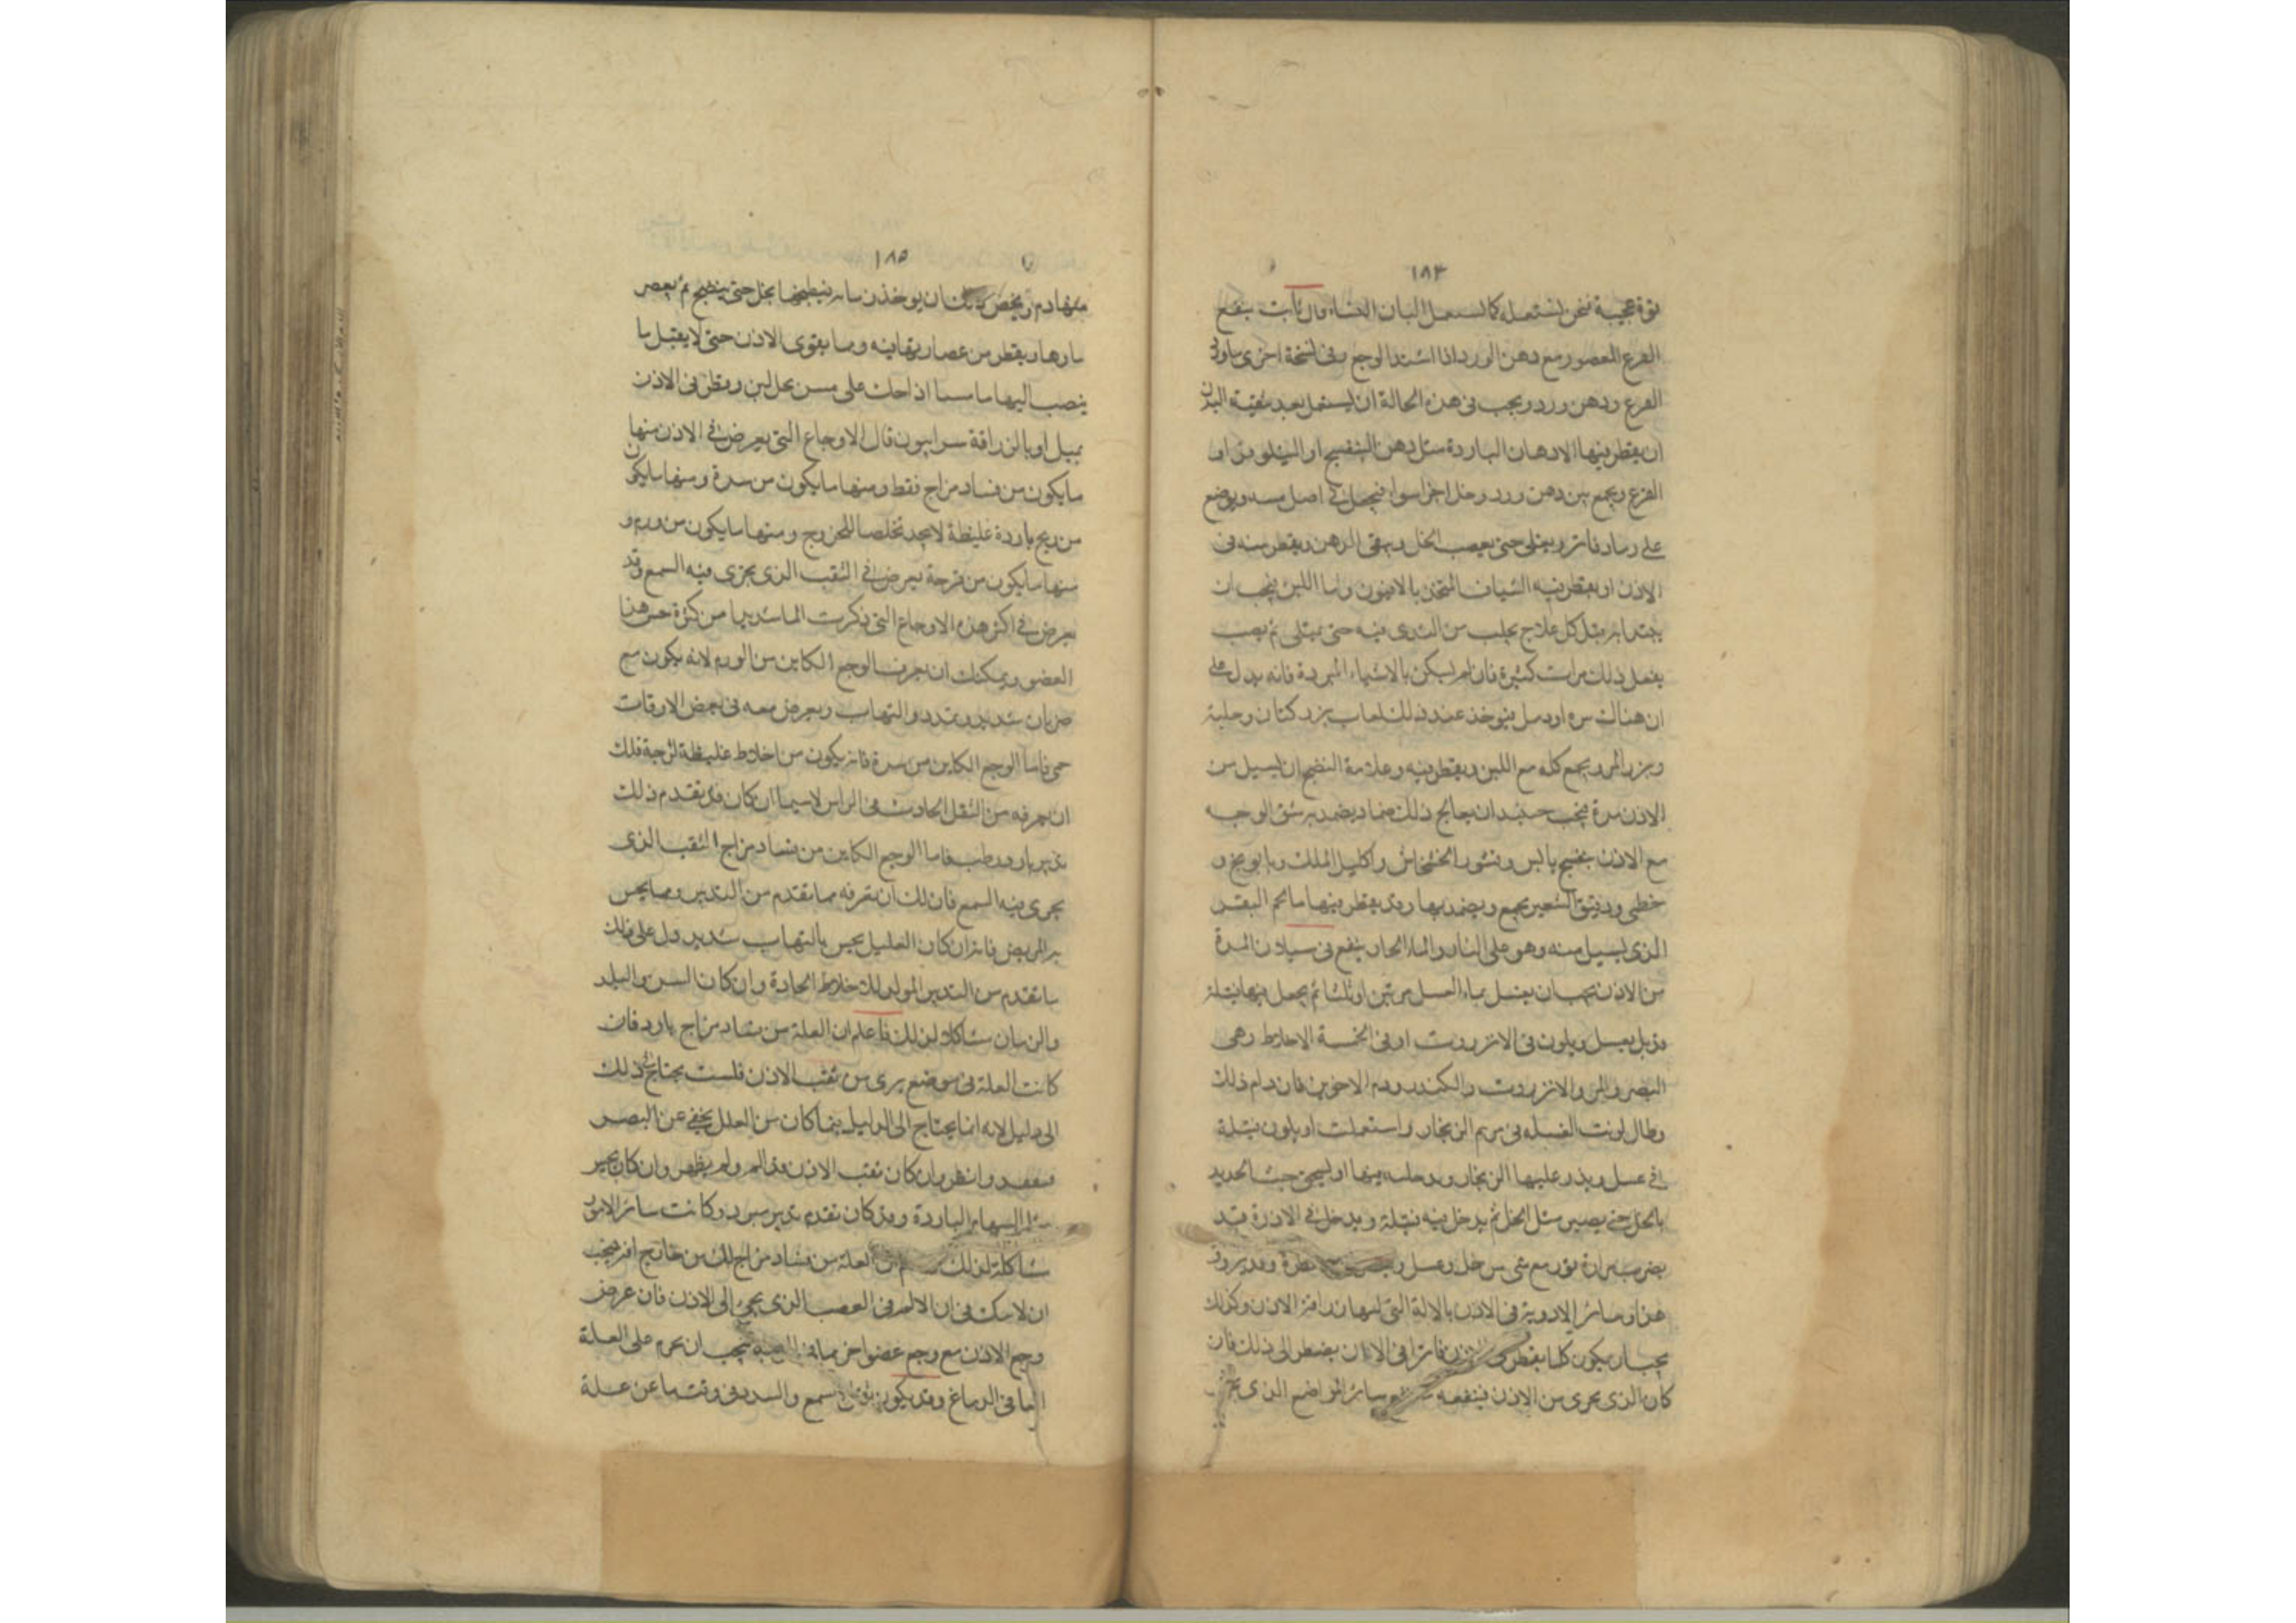 ١٨٤
قوة عجيبة فنحن نستعمله كما نستعمل البان النساء وقال ثابت ينفع
القرع المعصور مع دهن الورد اذا اشتد الوجع وفى نسخة اخرى ماء ورق
القرع ودهن ورد ويجب فى هذه الحالة ان يستعمل بعد تنقية البدن
ان يقطر فيها الادهان الباردة مثل دهن البنفسج او النيلوفر او
القرع ويجمع بين دهن ورد وخل اجزاء سواء فيجعل فى اصل ويوضع
على رماد فاتر ويغلى حتى يعصب الخل ويبقى الدهن ويقطر منه فى
الاذن او يقطر فيه الشياف المتخذ بالافيون واما اللبن فيجب ان
يبتدا به قبل كل علاج يحلب من الثدى فيه حتى يمتلى ثم يصب
يفعل ذلك مرات كثيرة فان لم يسكن بالاشياء المبردة فانه يدل على
ان هناك مده او دمل فيوخذ عند ذلك لعاب بزر كتان وحلبة
وبزر المر ويجمع كله مع اللبن ويقطر فيه وعلامة النضج ان يسيل من
الاذن مدة فيجب حينئذ ان يعالج ذلك ضماد يضمد به شق الوجه
مع الاذن بنفسج يابس وقشور الخشخاش واكليل الملك وبابونج و
خطمى ودقيق الشعير يجمع ويضمد بها وقد يقطر فيها ماء لحم البقر
الذى يسيل منه وهو على النار والماء الحار ينفع فى سيلان المدة
من الاذن يجب ان يغسل بماء العسل مرتين او ثلثا ثم يجعل فيها فتيلة
قد بل بعسل ويلوث فى الانزروت او فى الخمسة الاخلاط وهى
الصبر والمر والانزروت والكندر ودم الاخوين فان دام ذلك
وطال لوثت الفتيله فى مرهم الزنجار واستعملت او يلوث فتيلة
فى عسل ويذر عليها الزنجار ويدخله فيها او يسحق خبث الحديد
بالخل حتى يصير مثل الخل ثم يدخل فيه فتيلة ويدخل فى الاذن قد
يضرب مرارة ثور مع شى من خل وعسل
هذا وسائر الادوية فى الاذن بالالة التى لها زراقة الاذن وكذلك
يجب ان يكون كلما يقطر فى الاذن فاترا الى الا ان يضطر الى ذلك فان
كان الذى يجرى من الاذن فينفعه سائر المواضع الذى يج
١٨٥
منها دم ويخص ان يوخذ رمان فيطبخ بخل حتى ينضج ثم يعصر
ماوها ويقطر من عصارتها فيه ومما يقوى الاذن حتى لا يقبل ما
ينصب اليها ماميسا اذا حك على مسن بخل لين وقطر فى الاذن
بميل او بالزراقة سرابيون قال الاوجاع التى يعرض فى الاذن منها
ما يكون من فساد مزاج فقط ومنها ما يكون من سدة ومنها ما يكون
من ريح باردة غليظة لا يجد تخلصا للخروج ومنها ما يكون من ورم و
منها ما يكون من قرحة يعرض فى الثقب الذى يجرى فيه السمع وقد
يعرض فى اكثر هذه الاوجاع التى ذكرت الما شديدا من كثرة حس هذا
العضو ويمكنك ان تعرف الوجع الكاين من الورم لانه يكون مع
ضربان شديد وتمدد والتهاب ويعرض معه فى بعض الاوقات
حمى فاما الوجع الكاين من سدة فانه يكون من اخلاط غليظة لزجة فلك
ان تعرفه من الثقل الحادث فى الراس لا سيما ان كان قد تقدم ذلك
تدبير بارد رطب فاما الوجع الكاين من فساد مزاج الثقب الذى
يجرى فيه السمع فان لك ان تعرفه مما تقدم من التدبير ومما يحس
به المريض فانه ان كان العليل يحس بالتهاب شديد دل على ذلك
ما تقدم من التدبير المولد للاخلاط الحادة وان كان السن والبلد
والزمان مشاكلا لذلك فاعلم ان العلة من فساد مزاج بارد فان
كانت العلة فى موضع يرى من ثقب الاذن فلست تحتاج فى ذلك
الى دليل لانه انما يحتاج الى الدليل فيما كان من العلل يخفى عن البصر
فتفقد وانظر وان كان ثقب الاذن قد الم ولم يظهر وان كان يحس
الباردة وقد كان تقدم تدبير مبرد وكانت سائر الامور
مشاكلة لذلك العلة من فساد مزاج لك من خارج فيجب
ان لا شك فى ان الالم فى العصب الذى يجئ الى الاذن فان عرض
وجع الاذن مع وجع عضو اخر مما فى فيجب ان يحرم على العلة
انها فى الدماغ وقد يكون السمع والسدد فى وقت ما عن علة